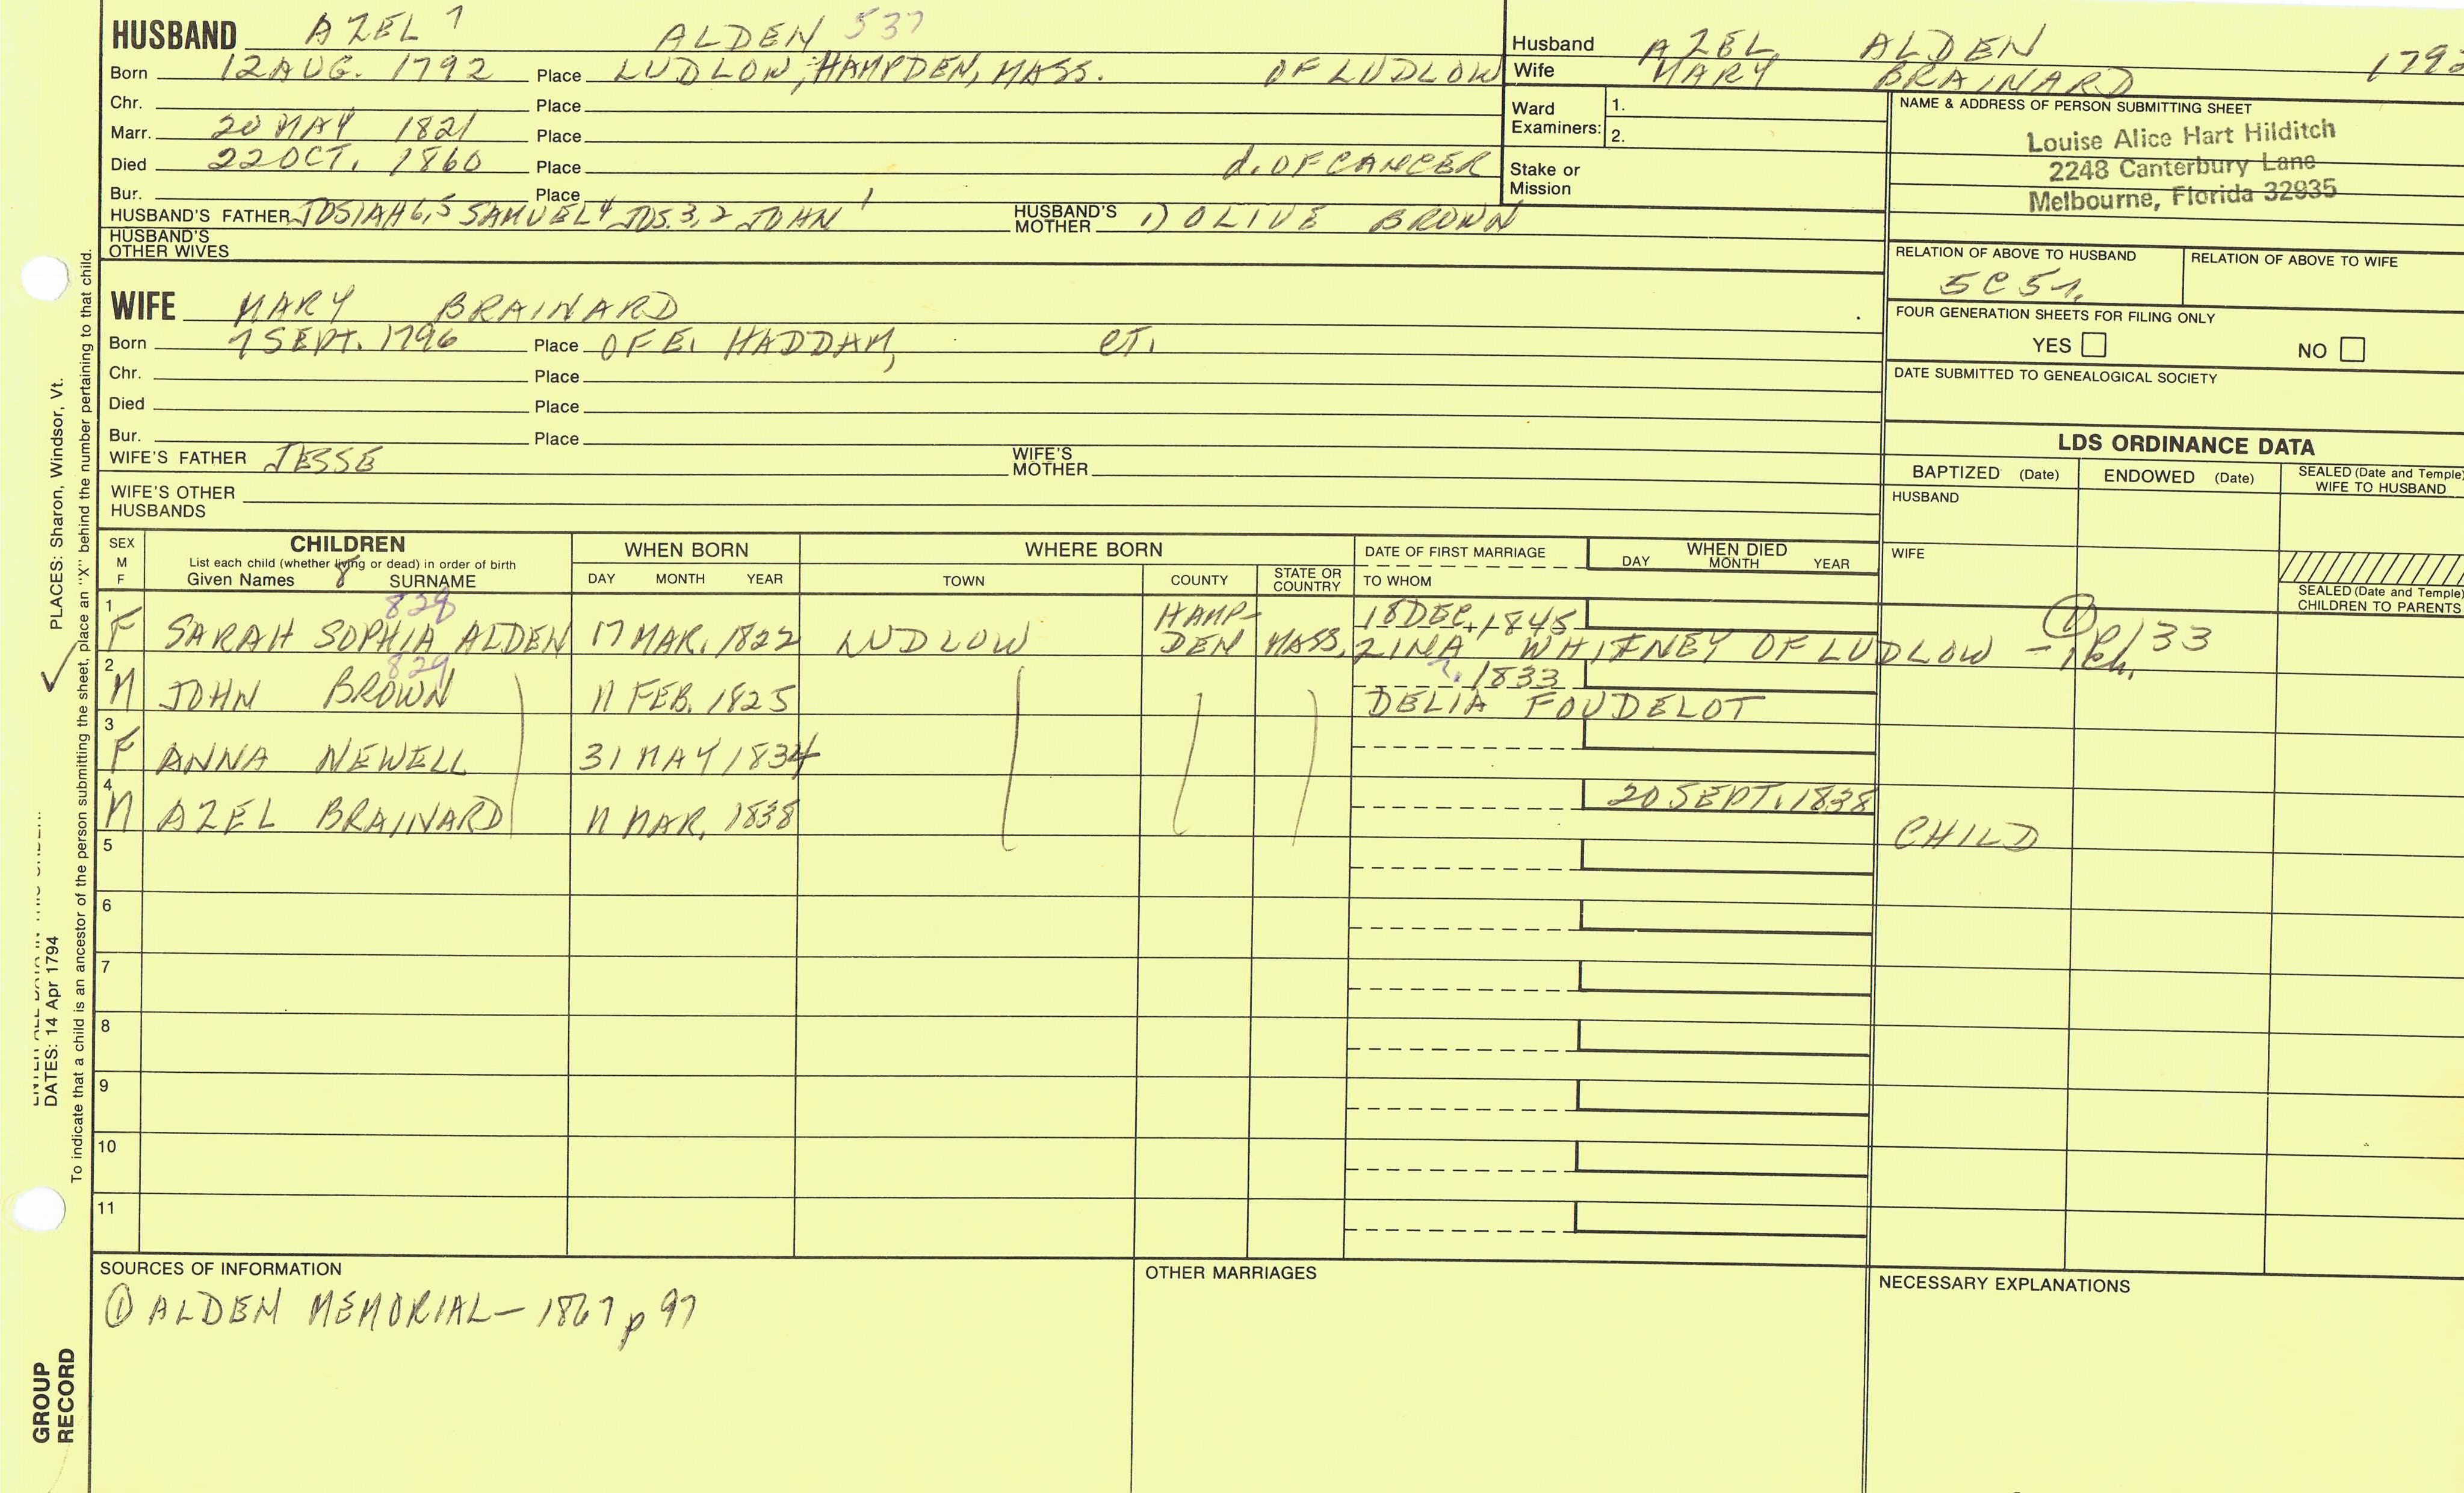 HUSBAND AZEL 7 ALDEN 537
Born 12 AUG. 1792 Place LUDLOW, HAMPDEN, MASS. OF LUDLOW
Chr. Place
Marr. 20 MAY 1821 Place
Died 22 OCT. 1860 Place d. OF CANCER
Bur. Place
HUSBAND'S FATHER JOSIAH 6,5 SAMUEL 4 JOS. 3,2 JOHN 1 HUSBAND'S MOTHER 1) OLIVE BROWN
HUSBAND'S OTHER WIVES
WIFE MARY BRAINARD
Born 7 SEPT. 1796 Place OF E. HADDAM, CT.
Chr. Place
Died Place
Bur. Place
WIFE'S FATHER JESSE WIFE'S MOTHER
WIFE'S OTHER HUSBANDS
Husband AZEL ALDEN
Wife MARY BRAINARD
Ward Examiners: 1.
2.
Stake or Mission
NAME & ADDRESS OF PERSON SUBMITTING SHEET
Louise Alice Hart Hilditch
2248 Canterbury Lane
Melbourne, Florida 32935
RELATION OF ABOVE TO HUSBAND RELATION OF ABOVE TO WIFE
FOUR GENERATION SHEETS FOR FILING ONLY
YES NO
DATE SUBMITTED TO GENEALOGICAL SOCIETY
LDS ORDINANCE DATA
BAPTIZED (Date) ENDOWED (Date) SEALED (Date and Temple) WIFE TO HUSBAND
HUSBAND
WIFE
SEALED (Date and Temple) CHILDREN TO PARENTS
SEX M F
CHILDREN
List each child (whether living or dead) in order of birth
Given Names 8 SURNAME
WHEN BORN
DAY MONTH YEAR
WHERE BORN
TOWN COUNTY STATE OR COUNTRY
DATE OF FIRST MARRIAGE
TO WHOM
WHEN DIED
DAY MONTH YEAR
828
1 F SARAH SOPHIA ALDEN 17 MAR. 1822 LUDLOW HAMP-DEN MASS. 18 DEC. 1845
ZINA WHITNEY OF LUDLOW
829
2 M JOHN BROWN 11 FEB. 1825 1833
DELIA FOUDELOT
3 F ANNA NEWELL 31 MAY 1834
4 M AZEL BRAINARD 11 MAR. 1838 20 SEPT. 1838 CHILD
5
6
7
8
9
10
11
SOURCES OF INFORMATION
① ALDEN MEMORIAL – 1867 p 97
OTHER MARRIAGES
NECESSARY EXPLANATIONS
PLACES: Sharon, Windsor, Vt.
DATES: 14 Apr 1794
To indicate that a child is an ancestor of the person submitting the sheet, place an "X" behind the number pertaining to that child.
GROUP RECORD